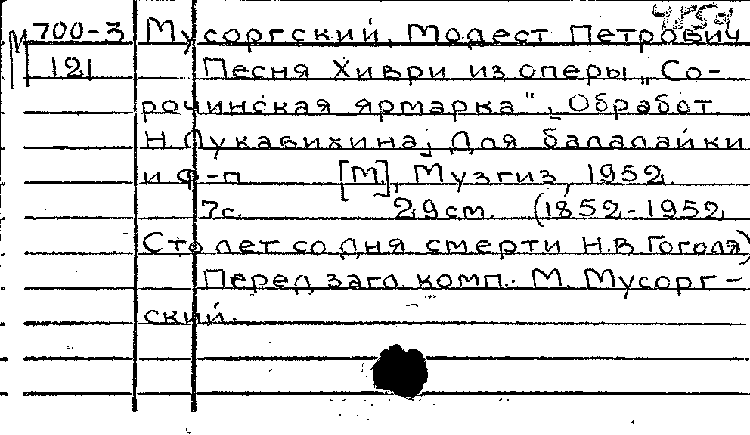 М 700-3 Мусоргский, Модест Петрович
121 Песня Хиври из оперы „Со-
рочинская ярмарка". Обработ.
Н. Лукавихина, Для балалайки
и ф-п. [М.], Музгиз, 1952.
7с. 29см. (1852-1952.
Сто лет со дня смерти Н.В. Гоголя)
Перед загл. комп.: М. Мусорг-
ский.